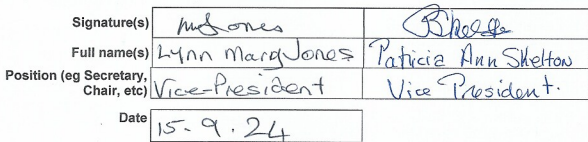 Signature(s)
Full name(s) Lynn Mary Jones Patricia Ann Skelton
Position (eg Secretary,
Chair, etc) Vice-President Vice President.
Date 15.9.24